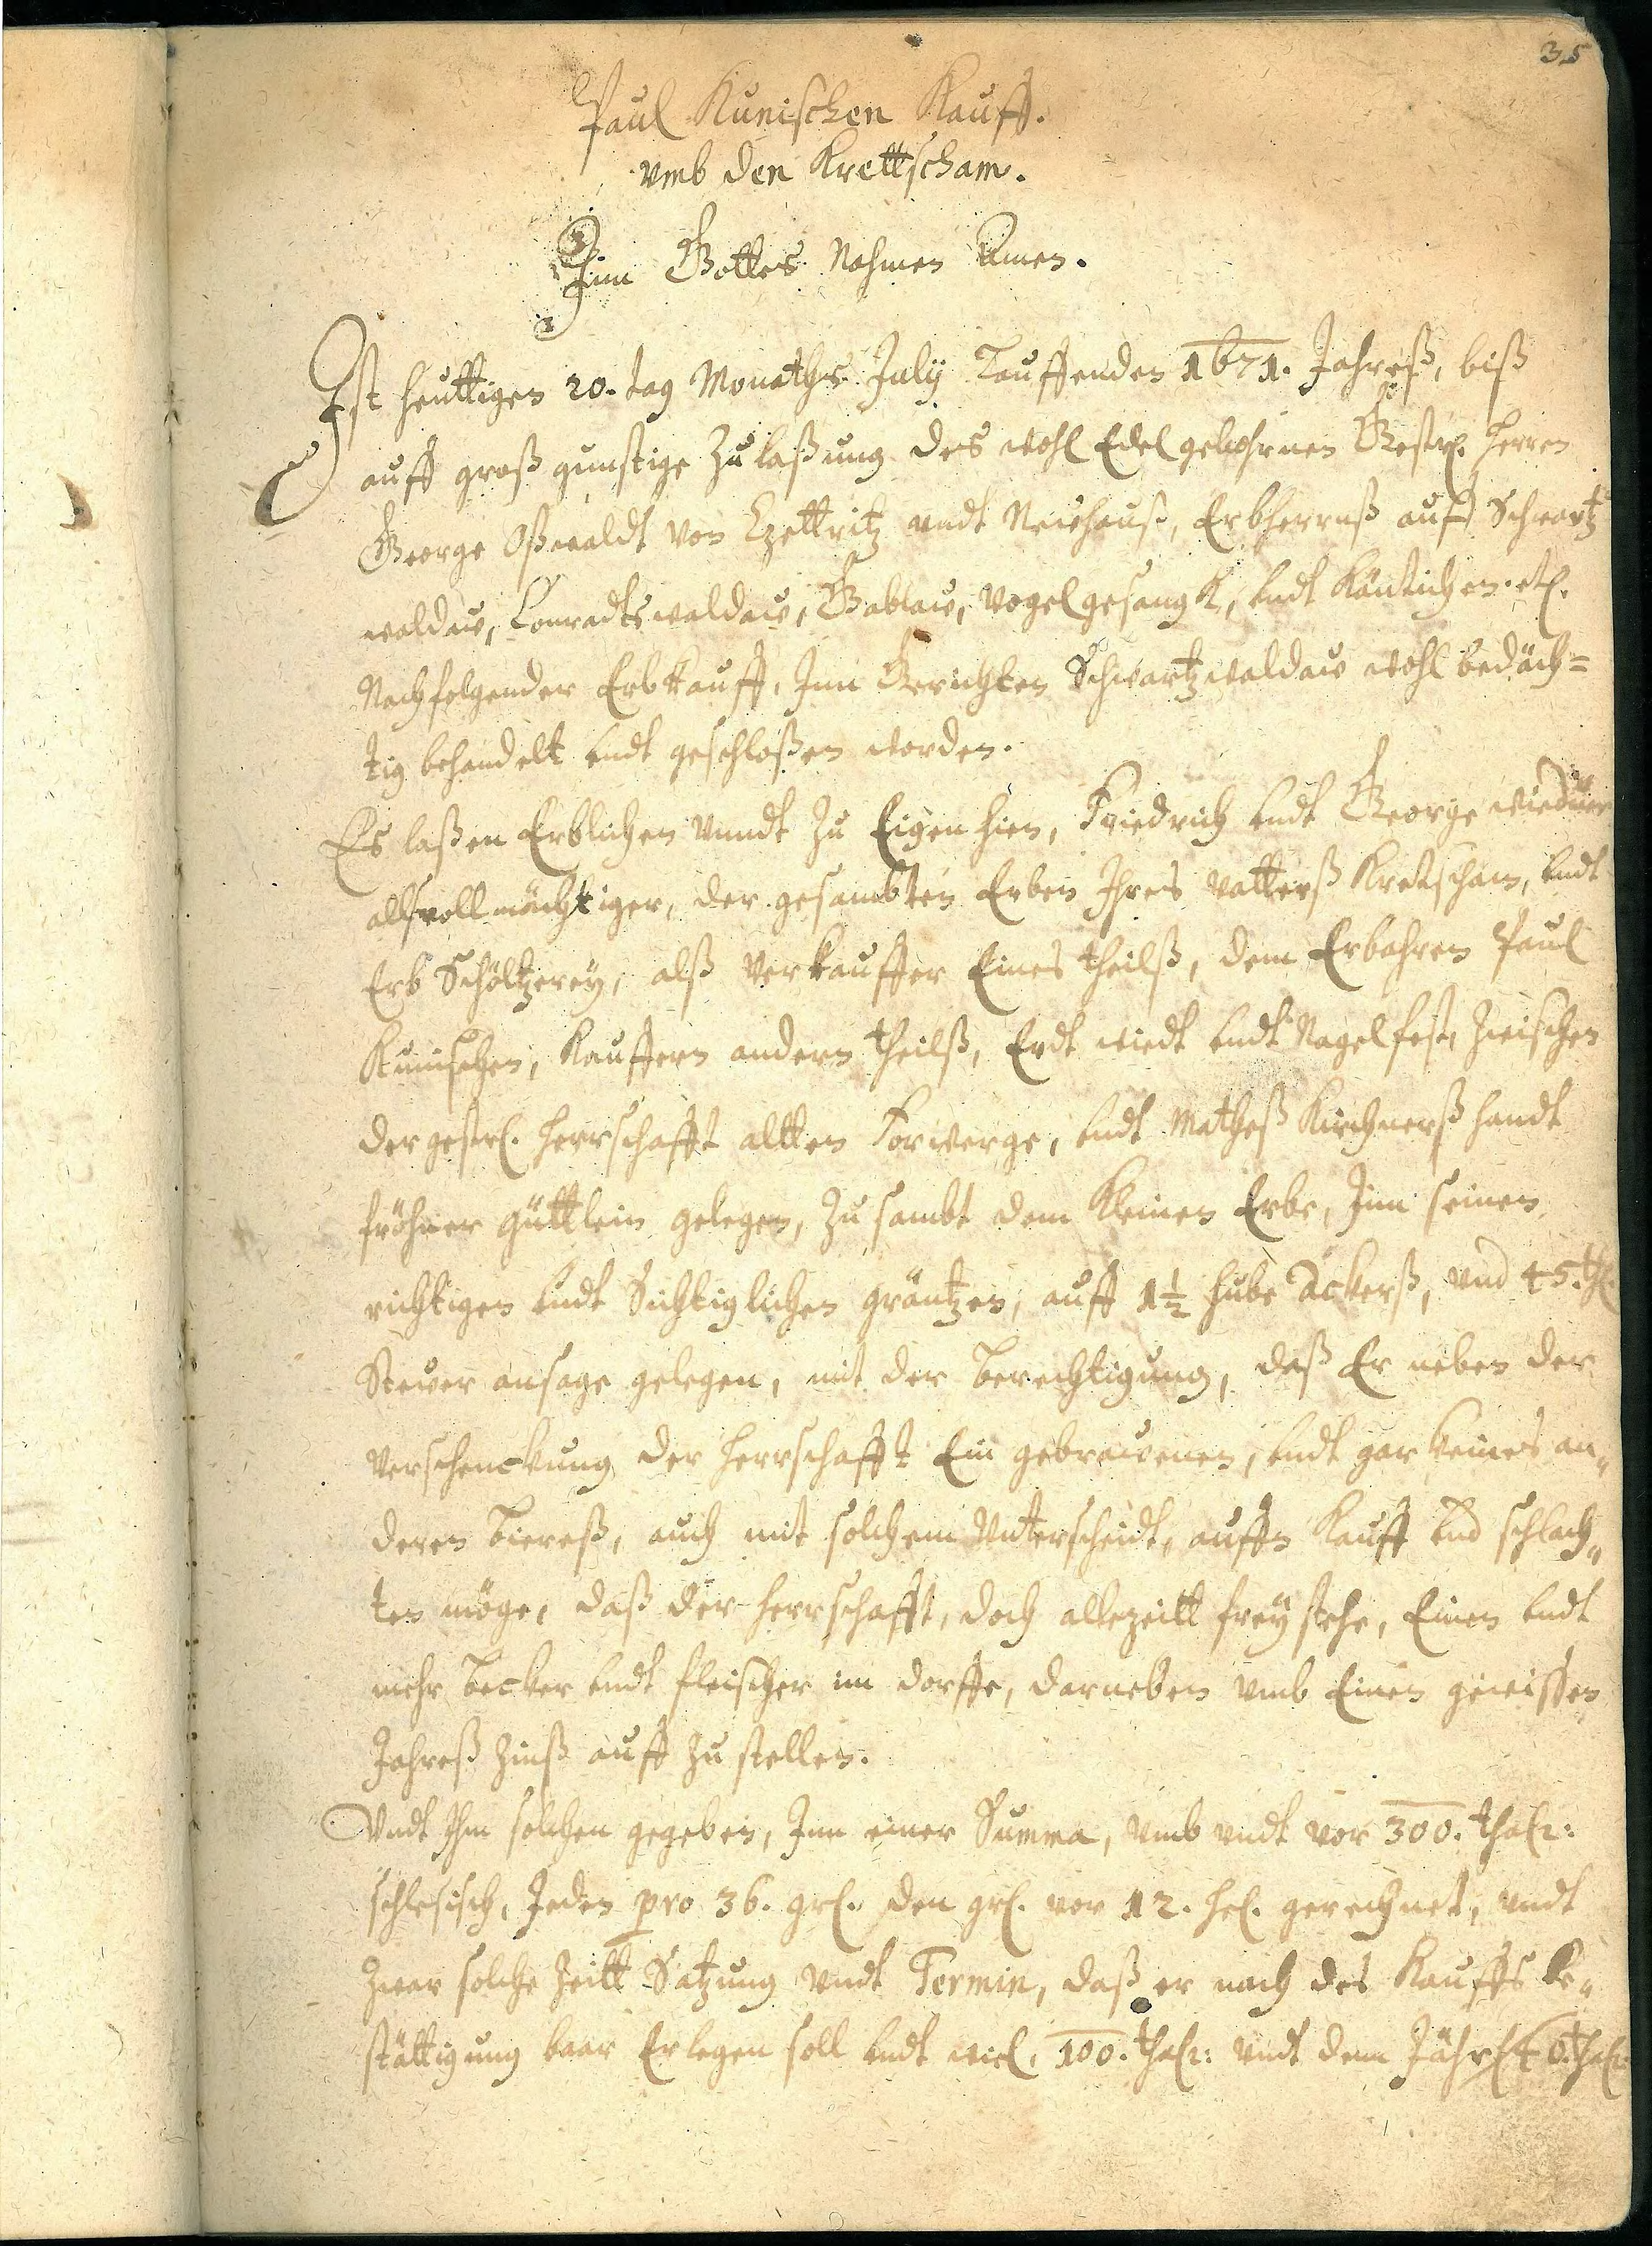 35
Paul Kunischen Kauff.
vmb den Krettscham.
Inn Gottes Nahmen Amen.
Ist heuttigen 20. tag Monaths July Lauffenden 1671. Jahreß, biß
auff groß gunstige Zulaßung des wohl Edelgebohrnen Gestr. Herren
George Oßwaldt von Czettritz vndt Neuhauß, Erbherrnß auff Schwartz
waldaw, Conradtswaldaw, Gablaw, Vogelgesangk, vndt etc.
Nachfolgender Erbkauff, Inn Gerichten Schwartzwaldaw wohl bedäch=
tig behandelt vndt geschloßen worden.
Es laßen Erblichen vnndt zu Eigen hien, Friedrich vndt George
allß vollmächtiger, der gesambten Erben Ihres Vatterß Kretscham, vndt
Erb Schöltzerey, alß Verkauffer Eines theilß, dem Erbahren Paul
Kunischen, Kauffern andern theilß, Erdt wiedt vndt Nagelfest, zwischen
der gestr. Herrschafft altten Forwerge, vndt Matheß Kirchnerß handt
fröhner güttlein gelegen, zu sambt dem Kleinen Erbe, Inn seinen
richtigen vndt Sichtiglichen gräntzen, auff 1½ hube ackerß, vnd 45. th.
Stewer ansage gelegen, mit der berechtigung, daß Er neben der
Verschenckung der Herrschafft Ein gebrawenen, vndt gar keines an„
deren biereß, auch mit solchem Vnterscheidt, auffn Kauff vnd schlach„
ten möge, daß der Herrschafft, doch allezeitt frey stehe, Einen vndt
mehr becker vndt fleischer im dorffe, darneben vmb Einen gewissen
Jahreß Zinß auff zu stellen.
Vndt Ihm solchen gegeben, Inn einer Summa, vmb vndt vor 300. thalr:
schlesisch, Jeden pro 36. grl. den grl. vor 12. hel. gerechnet, vndt
zwar solche Zeitt Satzung vndt Termin, daß er nach des Kauffs be„
stättigung baar Erlegen soll vndt will, 100. thalr: vndt dem Jährl.